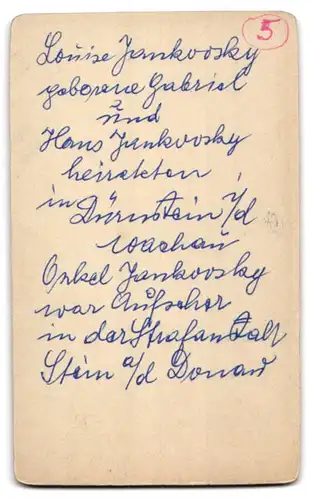 5
Louise Jankovsky
geborene Gabriel
und
Hans Jankovsky
heirateten
in Dürnstein i/d
Wachau
Onkel Jankovsky
war Aufseher
in der Strafanstalt
Stein a/d Donau